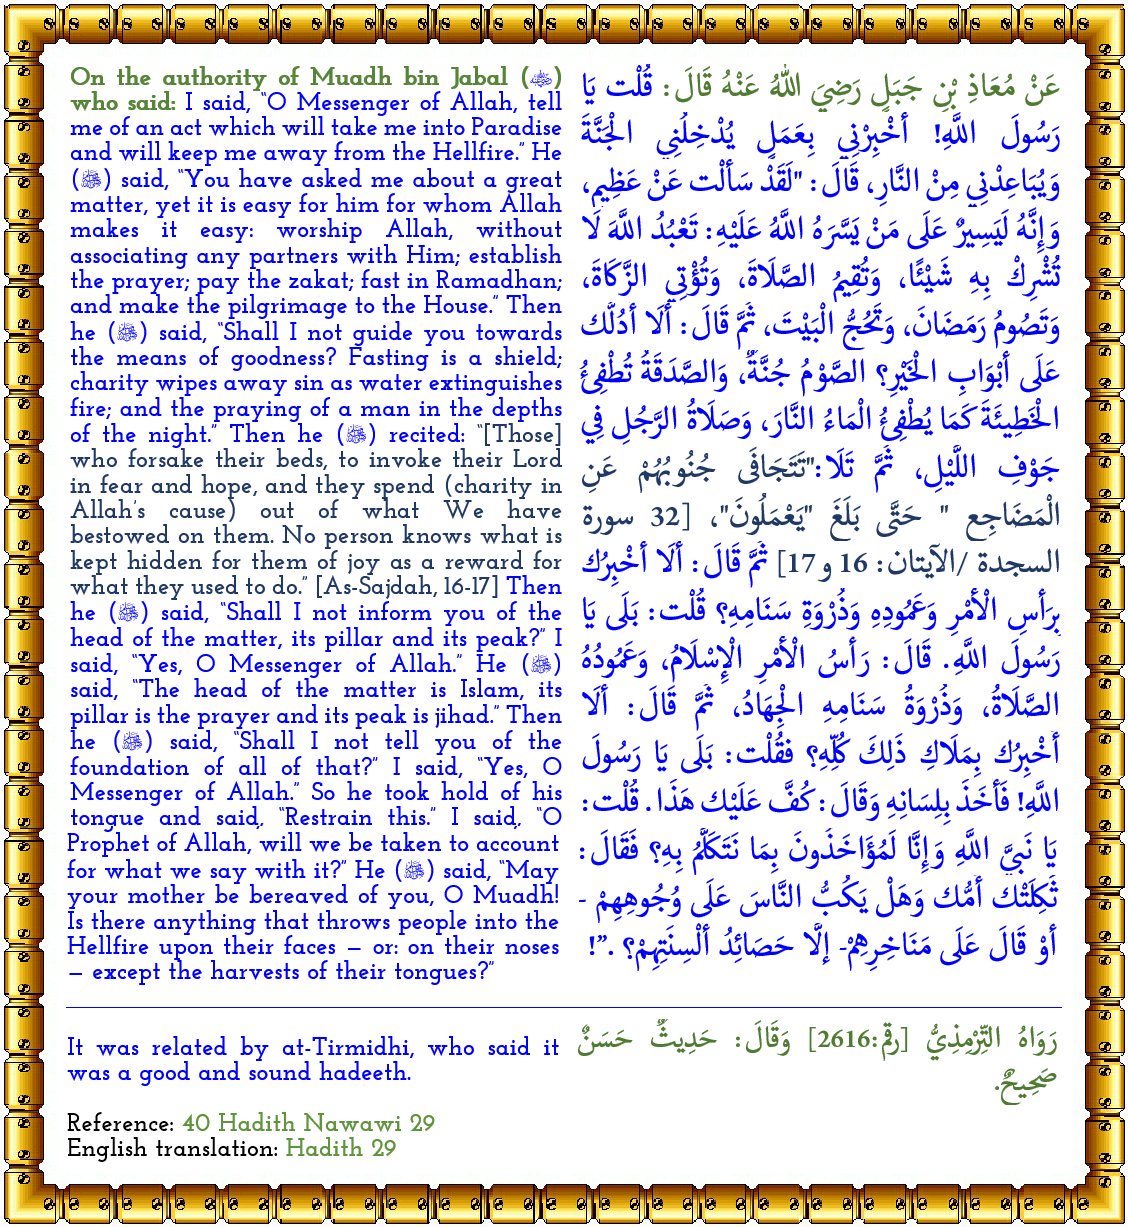 On the authority of Muadh bin Jabal (رضي الله عنه)
who said: I said, “O Messenger of Allah, tell
me of an act which will take me into Paradise
and will keep me away from the Hellfire.” He
(ﷺ) said, “You have asked me about a great
matter, yet it is easy for him for whom Allah
makes it easy: worship Allah, without
associating any partners with Him; establish
the prayer; pay the zakat; fast in Ramadhan;
and make the pilgrimage to the House.” Then
he (ﷺ) said, “Shall I not guide you towards
the means of goodness? Fasting is a shield;
charity wipes away sin as water extinguishes
fire; and the praying of a man in the depths
of the night.” Then he (ﷺ) recited: “[Those]
who forsake their beds, to invoke their Lord
in fear and hope, and they spend (charity in
Allah’s cause) out of what We have
bestowed on them. No person knows what is
kept hidden for them of joy as a reward for
what they used to do.” [As-Sajdah, 16-17] Then
he (ﷺ) said, “Shall I not inform you of the
head of the matter, its pillar and its peak?” I
said, “Yes, O Messenger of Allah.” He (ﷺ)
said, “The head of the matter is Islam, its
pillar is the prayer and its peak is jihad.” Then
he (ﷺ) said, “Shall I not tell you of the
foundation of all of that?” I said, “Yes, O
Messenger of Allah.” So he took hold of his
tongue and said, “Restrain this.” I said, “O
Prophet of Allah, will we be taken to account
for what we say with it?” He (ﷺ) said, “May
your mother be bereaved of you, O Muadh!
Is there anything that throws people into the
Hellfire upon their faces — or: on their noses
— except the harvests of their tongues?”
عَنْ مُعَاذِ بْنِ جَبَلٍ رَضِيَ اللهُ عَنْهُ قَالَ: قُلْت يَا
رَسُولَ اللَّهِ! أَخْبِرْنِي بِعَمَلٍ يُدْخِلُنِي الْجَنَّةَ
وَيُبَاعِدْنِي مِنْ النَّارِ، قَالَ: "لَقَدْ سَأَلْت عَنْ عَظِيمٍ،
وَإِنَّهُ لَيَسِيرٌ عَلَى مَنْ يَسَّرَهُ اللَّهُ عَلَيْهِ: تَعْبُدُ اللَّهَ لَا
تُشْرِكْ بِهِ شَيْئًا، وَتُقِيمُ الصَّلَاةَ، وَتُؤْتِي الزَّكَاةَ،
وَتَصُومُ رَمَضَانَ، وَتَحُجُّ الْبَيْتَ، ثُمَّ قَالَ: أَلَا أَدُلُّك
عَلَى أَبْوَابِ الْخَيْرِ؟ الصَّوْمُ جُنَّةٌ، وَالصَّدَقَةُ تُطْفِئُ
الْخَطِيئَةَ كَمَا يُطْفِئُ الْمَاءُ النَّارَ، وَصَلَاةُ الرَّجُلِ فِي
جَوْفِ اللَّيْلِ، ثُمَّ تَلَا:"تَتَجَافَى جُنُوبُهُمْ عَنِ
الْمَضَاجِعِ " حَتَّى بَلَغَ "يَعْمَلُونَ"، [32 سورة
السجدة /الآيتان: 16 و 17] ثُمَّ قَالَ: أَلَا أُخْبِرُك
بِرَأْسِ الْأَمْرِ وَعَمُودِهِ وَذُرْوَةِ سَنَامِهِ؟ قُلْت: بَلَى يَا
رَسُولَ اللَّهِ. قَالَ: رَأْسُ الْأَمْرِ الْإِسْلَامُ، وَعَمُودُهُ
الصَّلَاةُ، وَذُرْوَةُ سَنَامِهِ الْجِهَادُ، ثُمَّ قَالَ: أَلَا
أُخْبِرُك بِمَلَاكِ ذَلِكَ كُلِّهِ؟ فقُلْت: بَلَى يَا رَسُولَ
اللَّهِ! فَأَخَذَ بِلِسَانِهِ وَقَالَ: كُفَّ عَلَيْك هَذَا. قُلْت:
يَا نَبِيَّ اللَّهِ وَإِنَّا لَمُؤَاخَذُونَ بِمَا نَتَكَلَّمُ بِهِ؟ فَقَالَ:
ثَكِلَتْك أُمُّك وَهَلْ يَكُبُّ النَّاسَ عَلَى وُجُوهِهِمْ -
أَوْ قَالَ عَلَى مَنَاخِرِهِمْ- إلَّا حَصَائِدُ أَلْسِنَتِهِمْ؟ .”!
It was related by at-Tirmidhi, who said it
was a good and sound hadeeth.
رَوَاهُ التِّرْمِذِيُّ [رقم:2616] وَقَالَ: حَدِيثٌ حَسَنٌ
صَحِيحٌ.
Reference: 40 Hadith Nawawi 29
English translation: Hadith 29